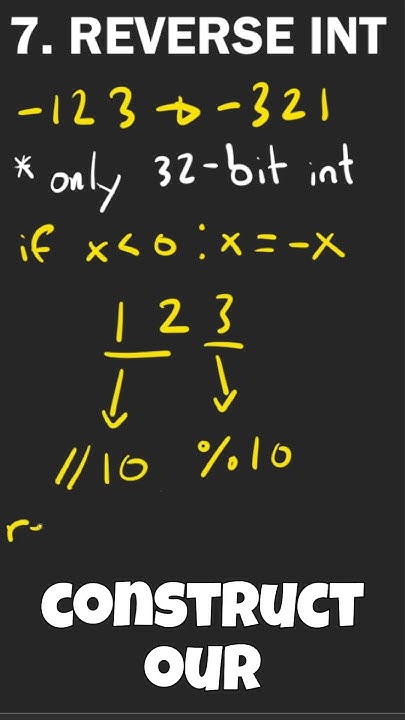 7. REVERSE INT
-123 → -321
* only 32-bit int
if x<0: x=-x
1 2 3
//10 %10
r-
CONSTRUCT
OUR